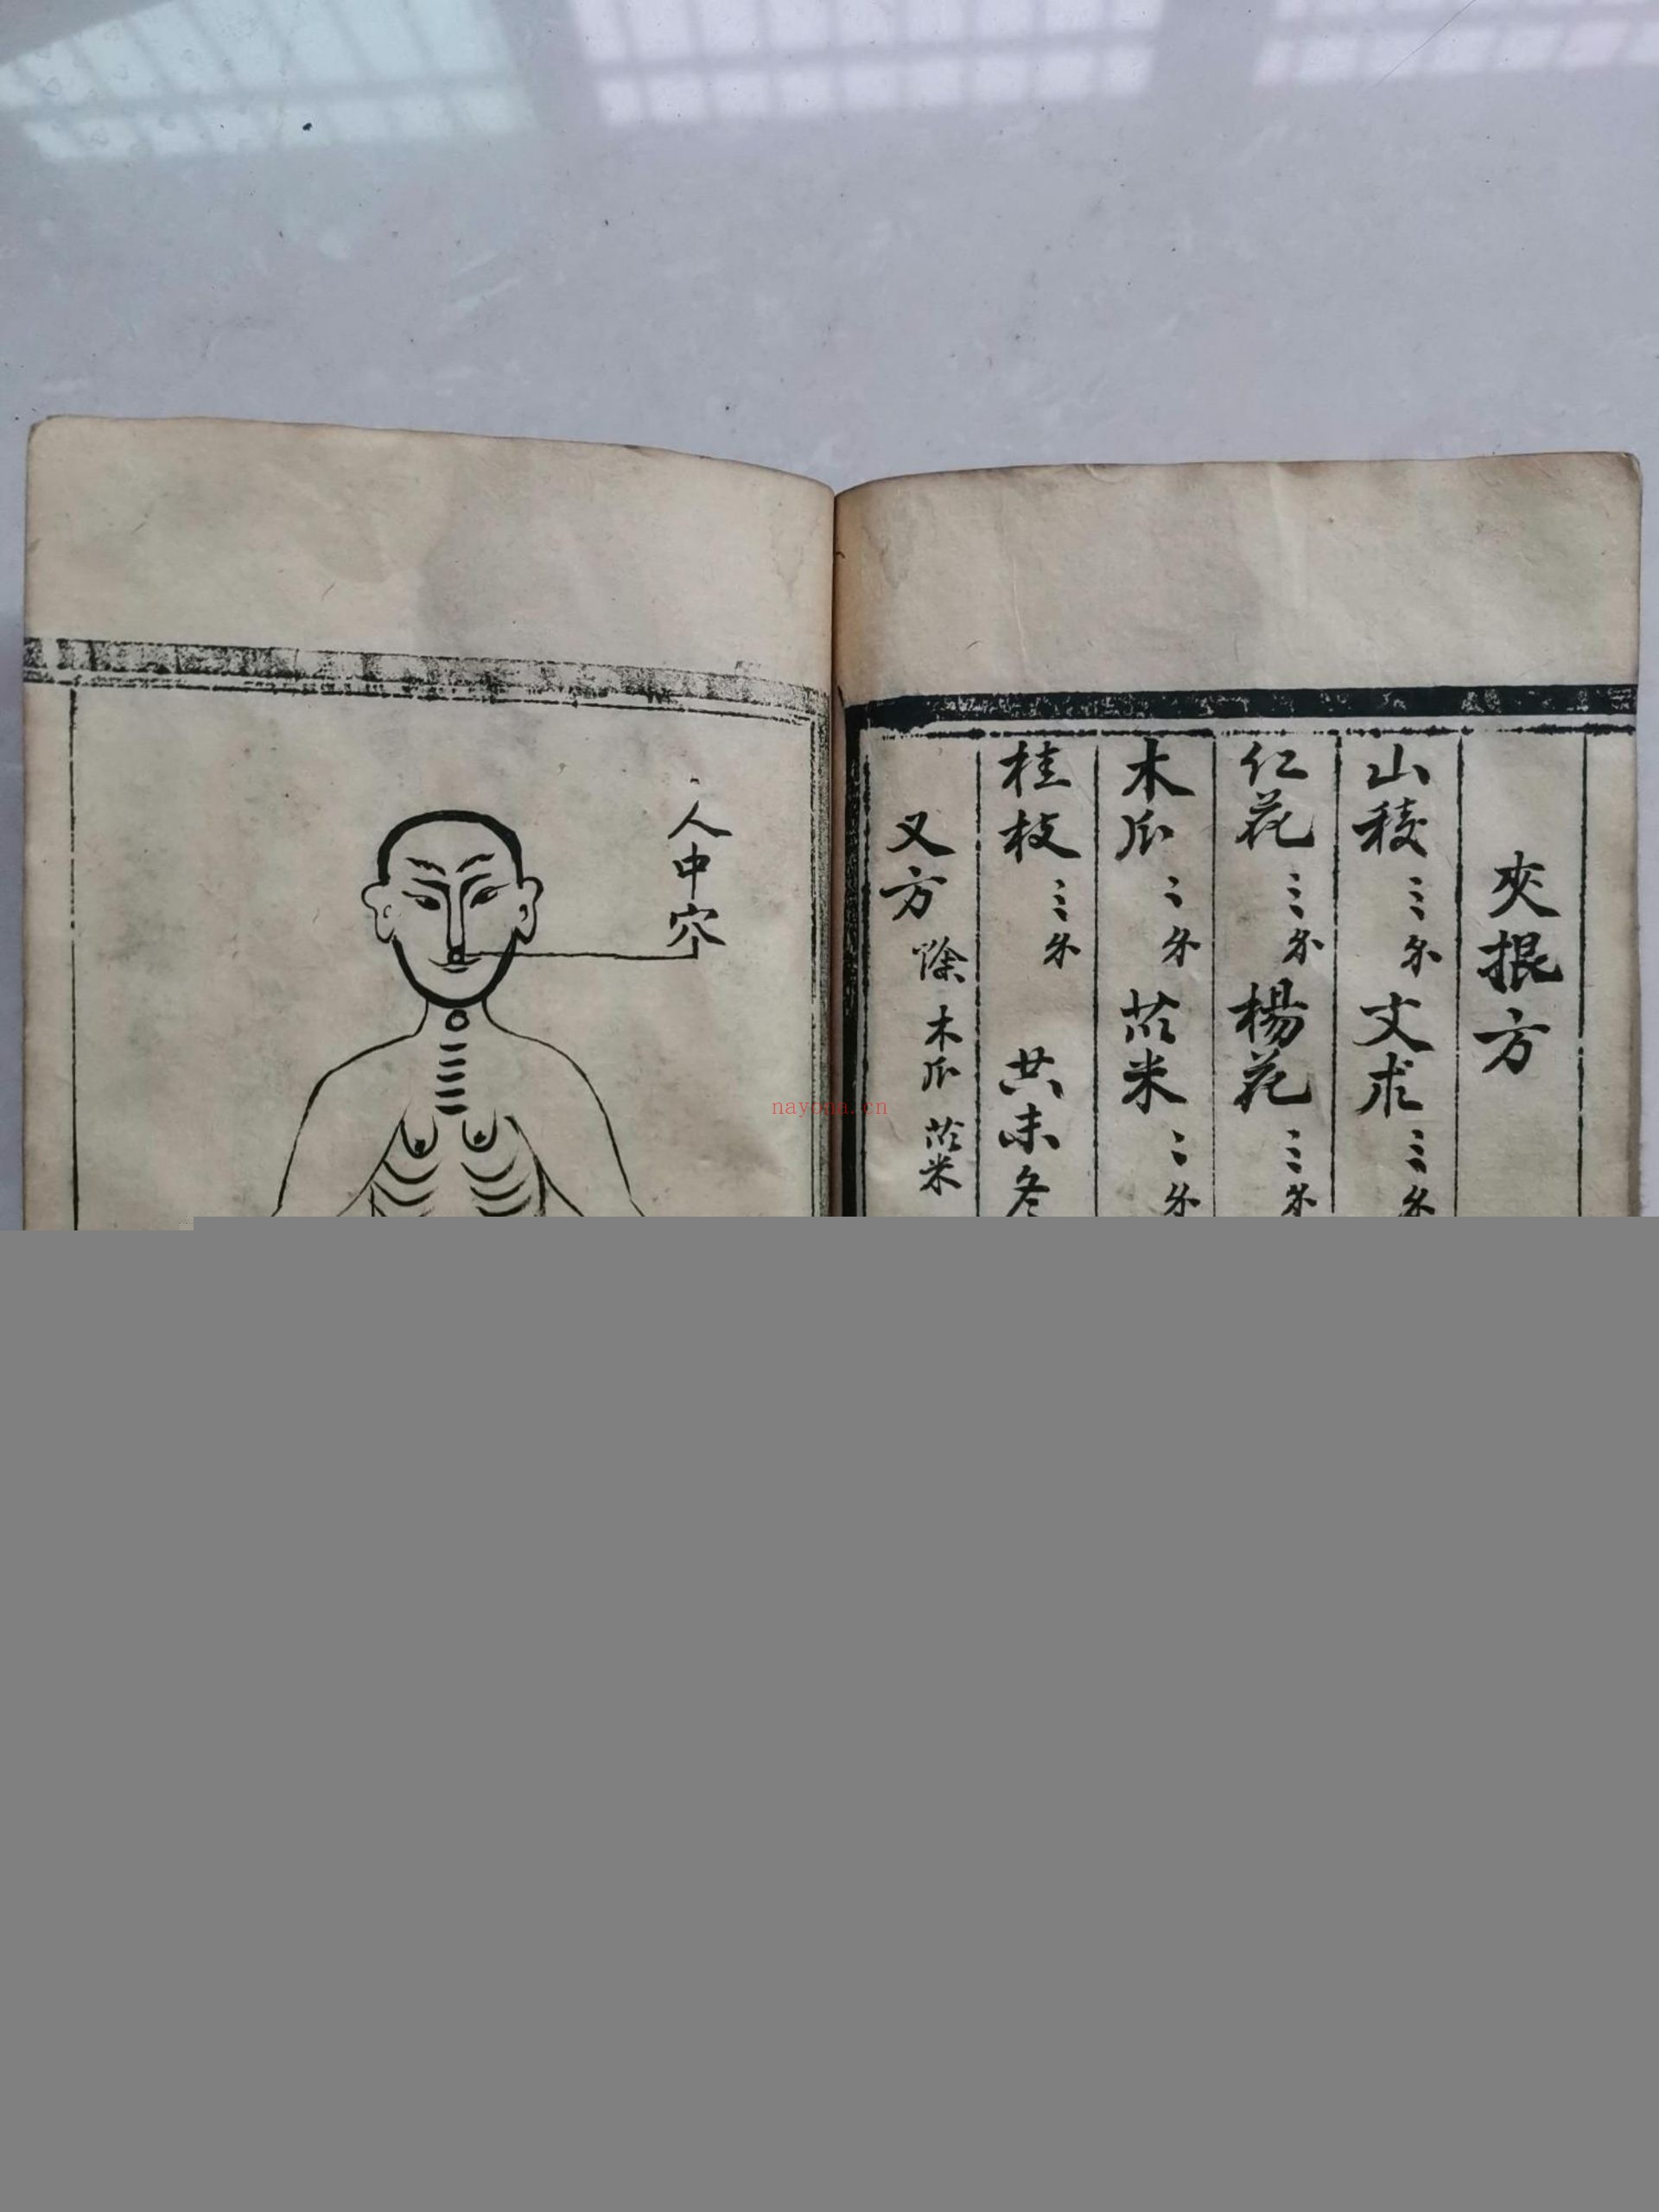 夾掍方
山稜三分 文朮三分
仁花三分 楊花三分
木瓜二分 苡米二分
桂枝三分 共末冬
又方 除木瓜苡米
人中穴
nayona.cn